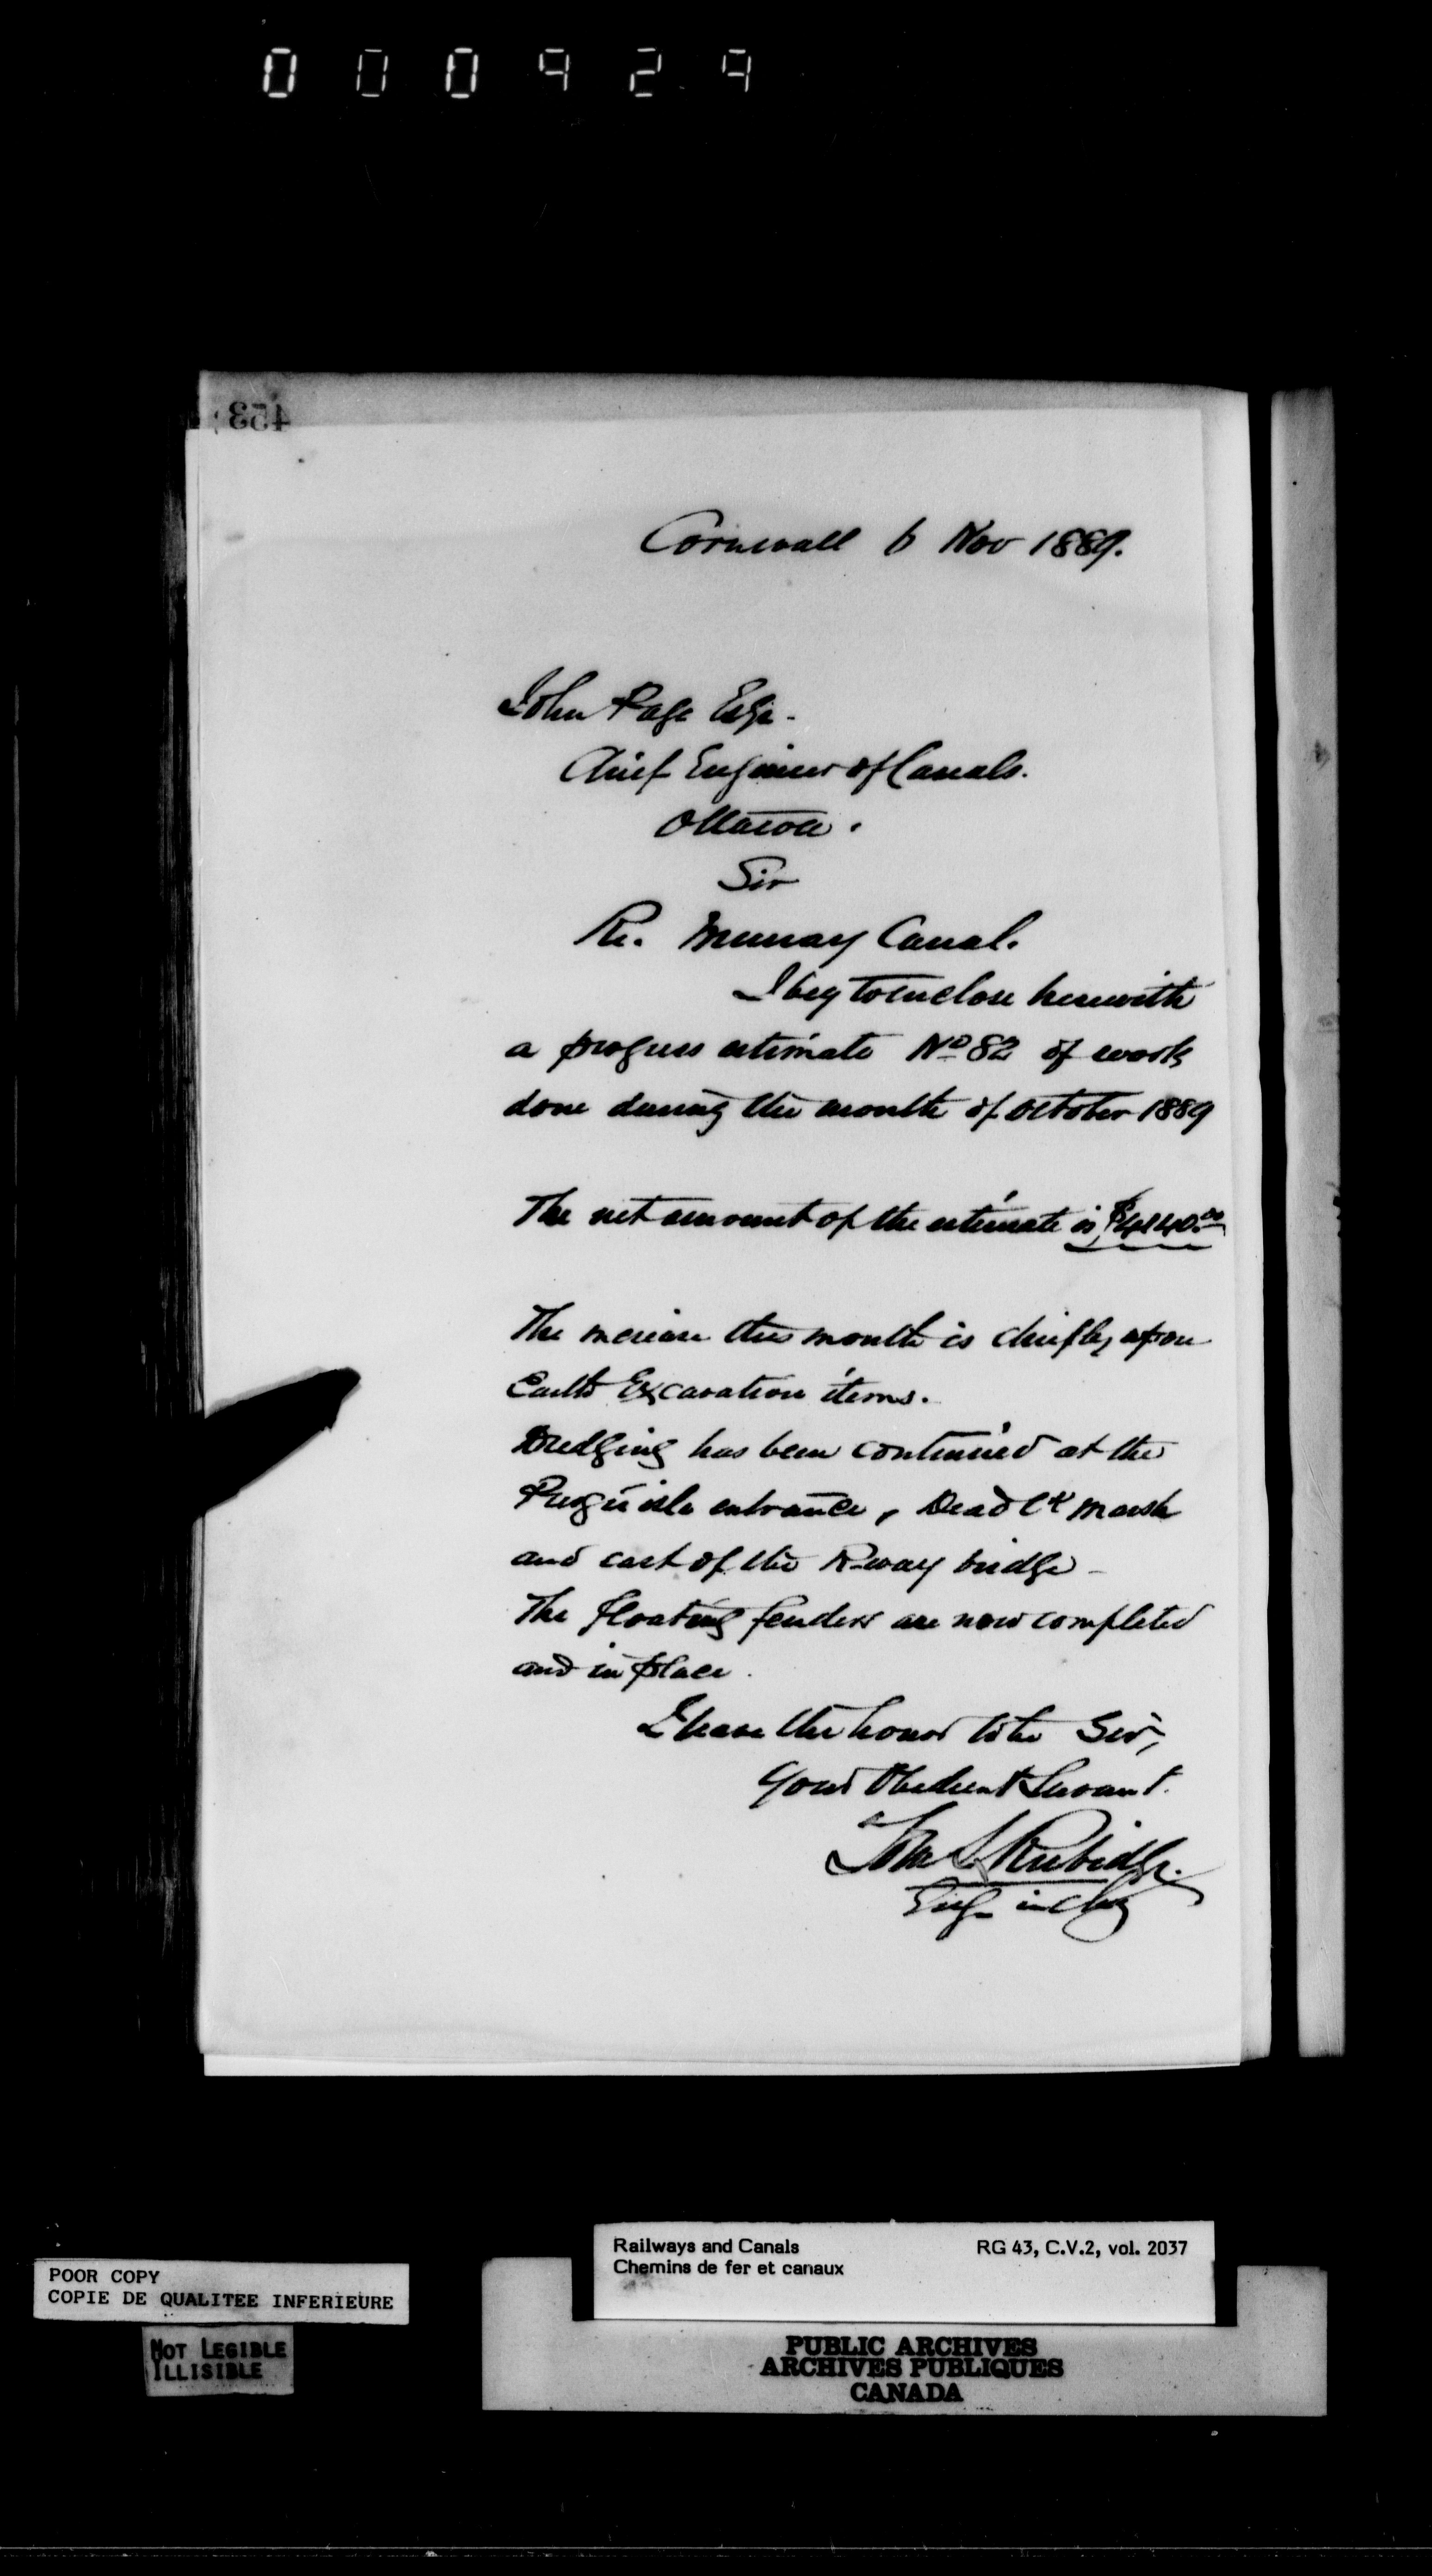 000929
453
Cornwall 6 Nov 1889.
John Page Esqr.
Chief Engineer of Canals.
Ottawa.
Sir
Re. Murray Canal.
I beg to enclose herewith
a progress estimate No 82 of work
done during the month of October 1889
The net amount of the estimate is $4140.00
The increase this month is chiefly upon
Earth Excavation items.
Dredging has been continued at the
Presqu'isle entrance, Dead Ck marsh
and east of the R-way bridge -
The floating fenders are now completed
and in place.
I have the honor to be Sir,
Your Obedient Servant.
Tom S. Rubidge.
Engr in Chg
Railways and Canals RG 43, C.V.2, vol. 2037
Chemins de fer et canaux
POOR COPY
COPIE DE QUALITEE INFERIEURE
NOT LEGIBLE
ILLISIBLE
PUBLIC ARCHIVES
ARCHIVES PUBLIQUES
CANADA